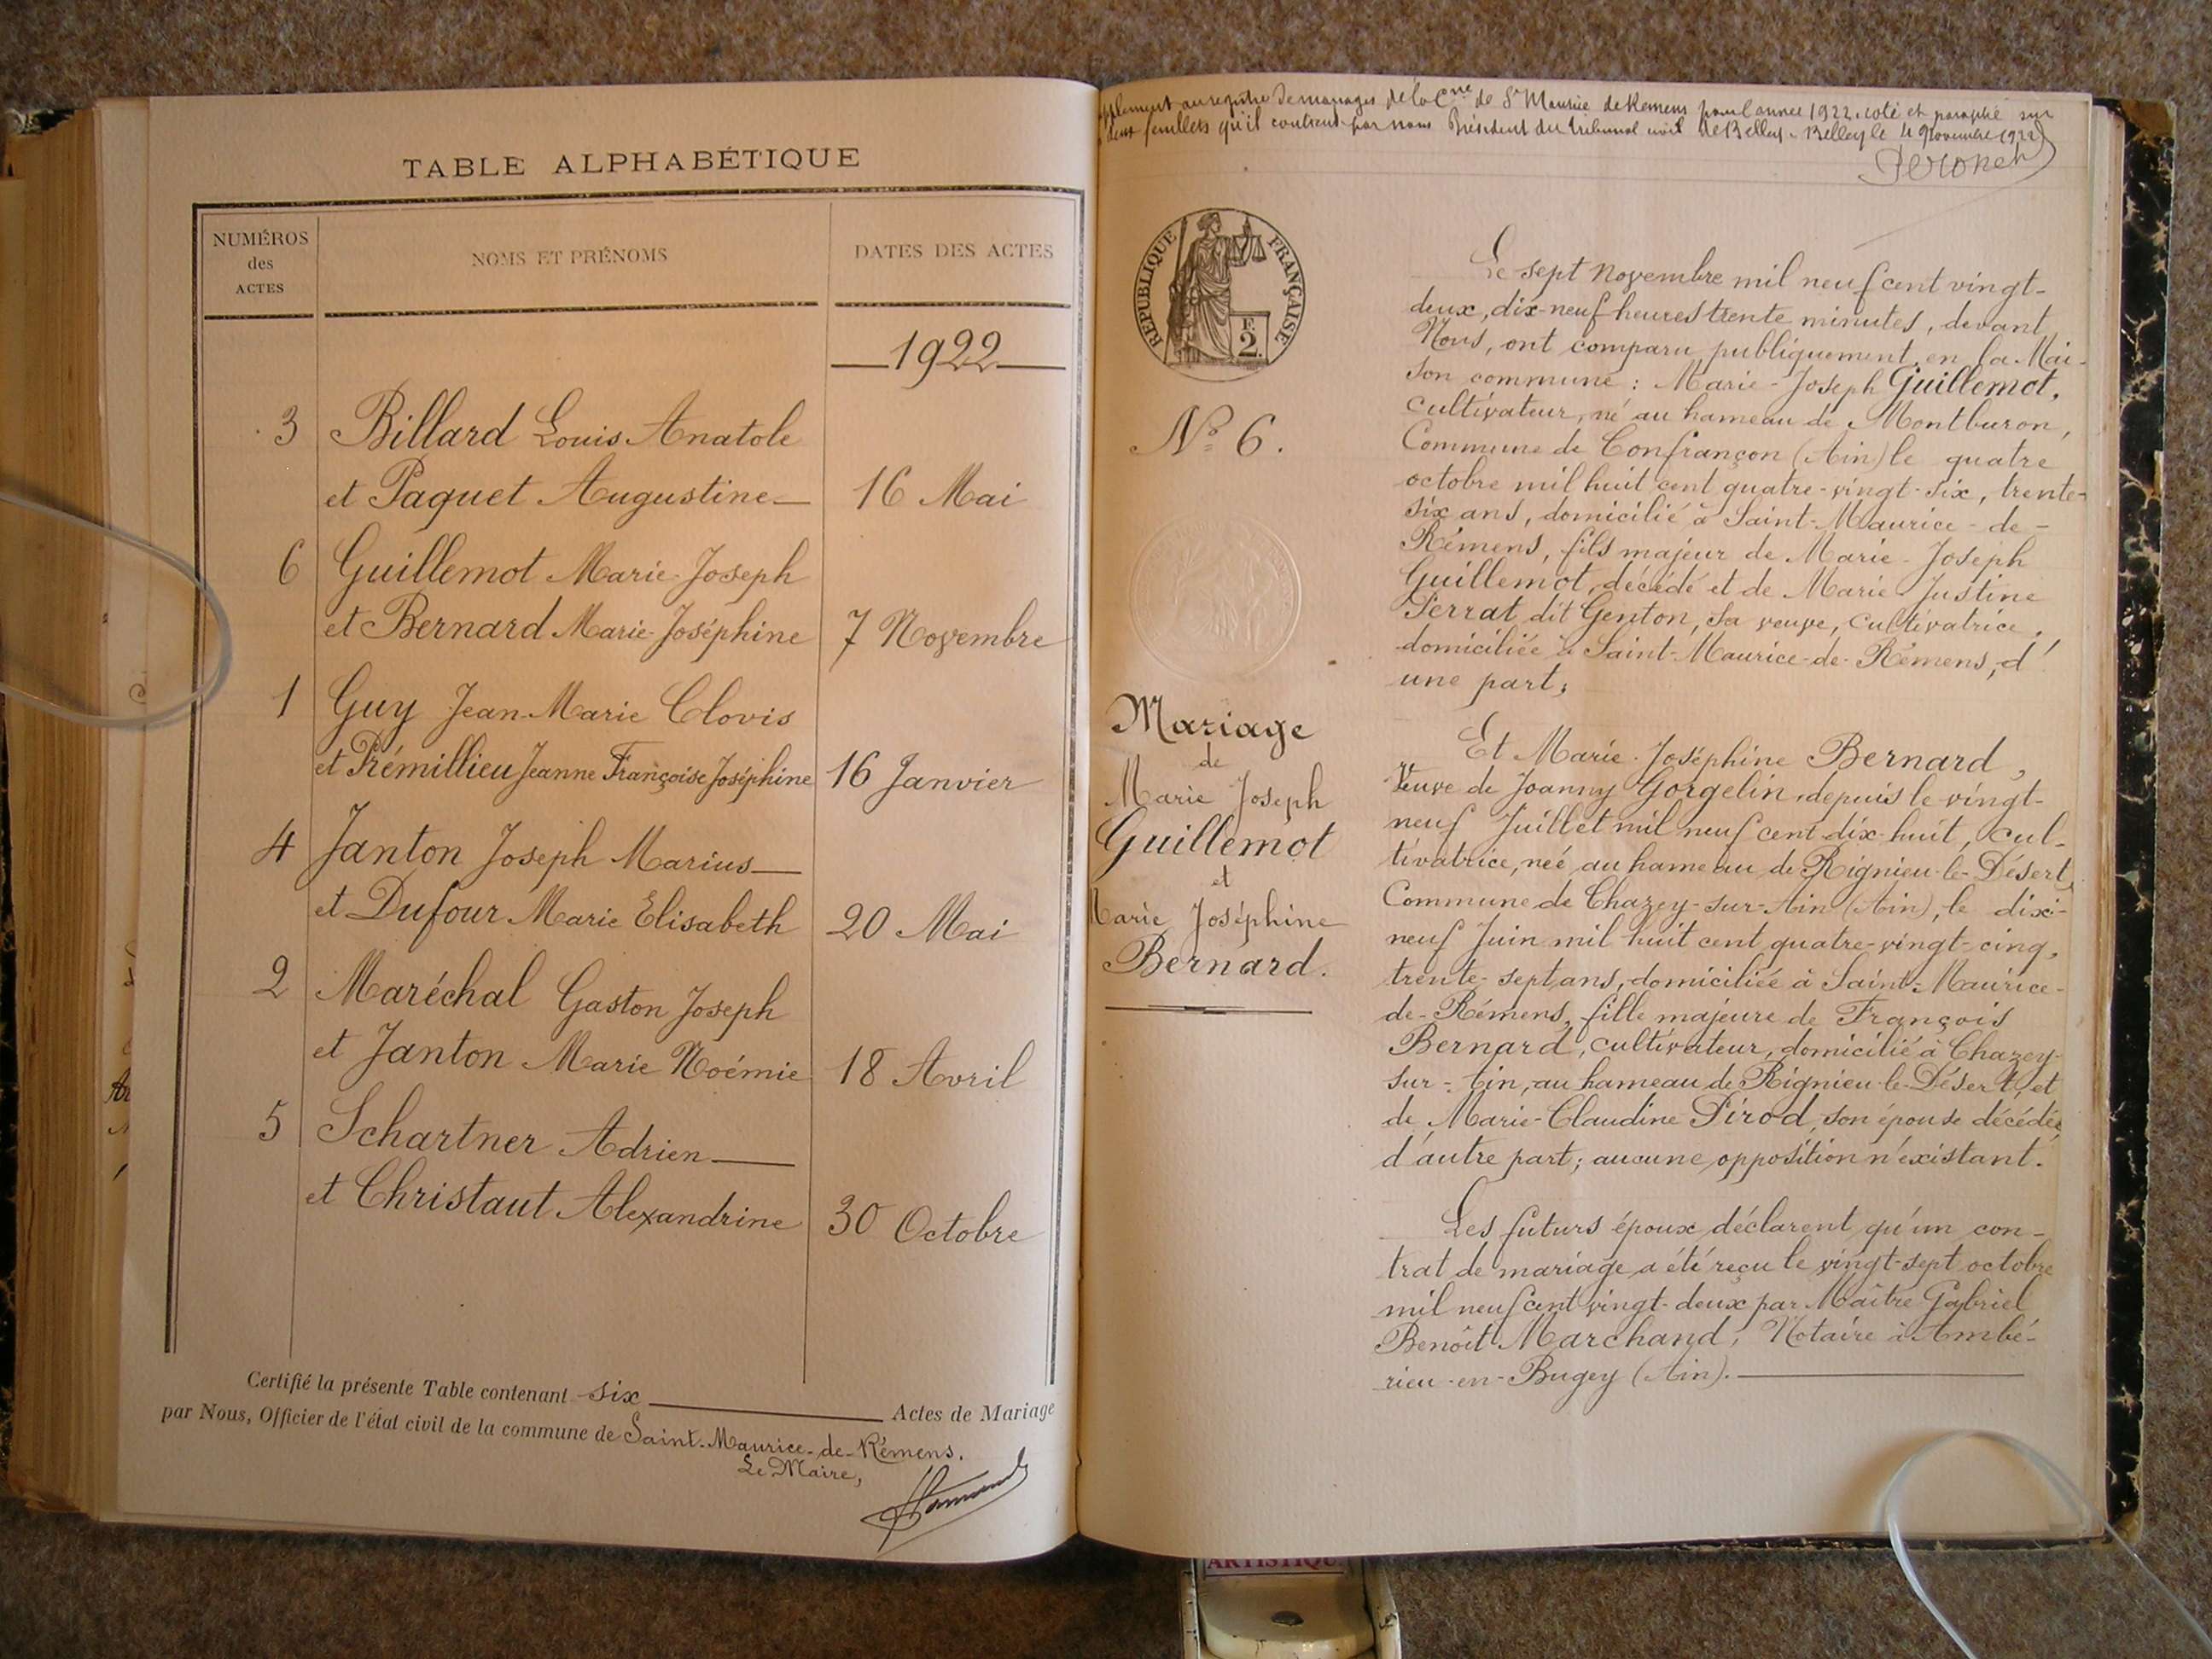 TABLE ALPHABÉTIQUE
NUMÉROS
des
ACTES
NOMS ET PRÉNOMS
DATES DES ACTES
1922
3 Billard Louis Anatole
et Paquet Augustine 16 Mai
6 Guillemot Marie-Joseph
et Bernard Marie-Joséphine 7 Novembre
1 Guy Jean-Marie Clovis
et Prémillieu Jeanne Françoise Joséphine 16 Janvier
4 Janton Joseph Marius
et Dufour Marie Elisabeth 20 Mai
2 Maréchal Gaston Joseph
et Janton Marie Noémie 18 Avril
5 Schartner Adrien
et Christaut Alexandrine 30 Octobre
Certifié la présente Table contenant six Actes de Mariage
par Nous, Officier de l'état civil de la commune de Saint-Maurice-de-Rémens.
Le Maire,
au registre de mariages de la Cne de St Maurice de Remens pour l'année 1922, coté et paraphé sur
deux feuillets qu'il contient par nous Président du tribunal civil de Belley. Belley le 4 Novembre 1922
RÉPUBLIQUE FRANÇAISE
F.
2
No 6.
Mariage
de
Marie Joseph
Guillemot
et
Marie Joséphine
Bernard.
Le sept Novembre mil neuf cent vingt-
deux, dix-neuf heures trente minutes, devant
Nous, ont comparu publiquement en la Mai-
son commune : Marie-Joseph Guillemot,
cultivateur, né au hameau de Montburon,
Commune de Confrançon (Ain) le quatre
octobre mil huit cent quatre-vingt-six, trente-
six ans, domicilié à Saint-Maurice-de-
Rémens, fils majeur de Marie-Joseph
Guillemot, décédé et de Marie Justine
Perrat dit Genton, sa veuve, cultivatrice,
domiciliée à Saint-Maurice-de-Rémens, d'
une part;
Et Marie-Joséphine Bernard,
Veuve de Joanny Gorgelin, depuis le vingt-
neuf Juillet mil neuf cent dix-huit, cul-
tivatrice, née au hameau de Rignieu-le-Désert,
Commune de Chazey-sur-Ain (Ain), le dix-
neuf Juin mil huit cent quatre-vingt-cinq,
trente-sept ans, domiciliée à Saint-Maurice-
de-Rémens, fille majeure de François
Bernard, cultivateur, domicilié à Chazey-
sur-Ain, au hameau de Rignieu-le-Désert, et
de Marie-Claudine Pirod, son épouse décédée,
d'autre part; aucune opposition n'existant.
Les futurs époux déclarent qu'un con-
trat de mariage a été reçu le vingt-sept octobre
mil neuf cent vingt-deux par Maître Gabriel
Benoît Marchand, Notaire à Ambé-
rieu-en-Bugey (Ain).
ARTISTIQUE